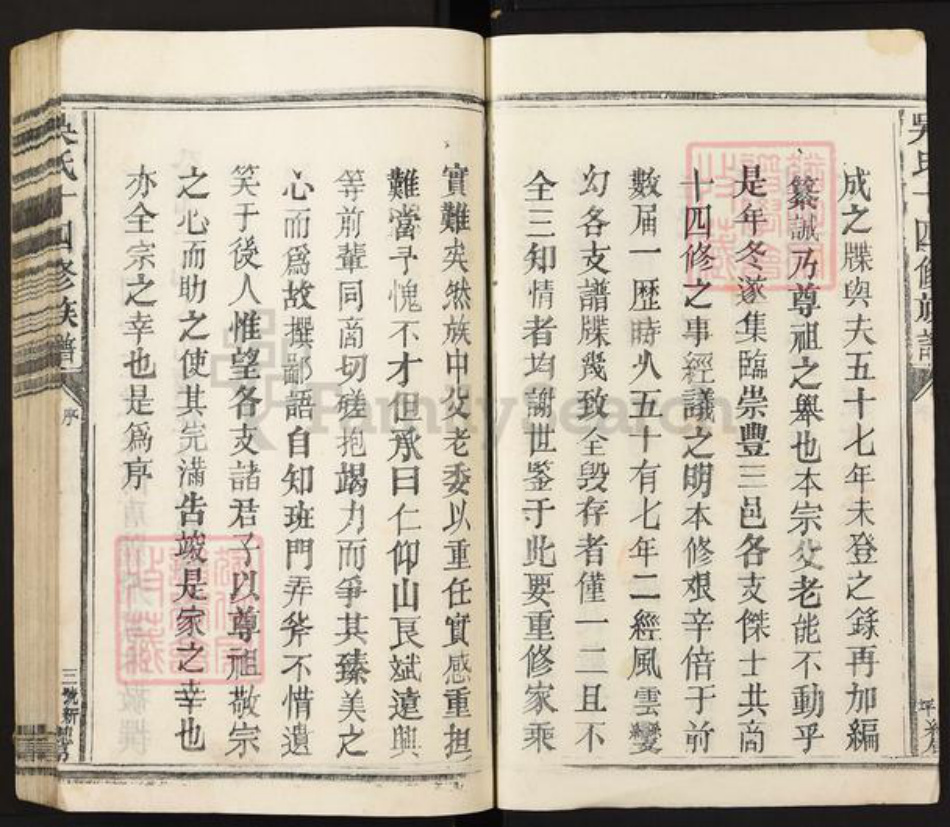 吳氏十四修族譜
成之牒與夫五十七年未登之錄再加編
纂誠乃尊祖之舉也本宗父老能不動乎
是年冬遂集臨崇豐三邑各支傑士共商
十四修之事經議之明本修艱辛倍于前
數屆一歷時火五十有七年二經風雲變
幻各支譜牒幾致全毀存者僅一二且不
全三知情者均謝世鉴于此要重修家乘
實難矣然族中父老委以重任實感重担
難當予愧不才但承曰仁仰山艮斌遠興
等前輩同商切磋抱竭力而爭其臻美之
心而為故撰鄙語自知班門弄斧不惜遺
笑于後人惟望各支諸君子以尊祖敬宗
之心而助之使其完滿告竣是家之幸也
亦全宗之幸也是為序
吳氏十四修族譜
序
FamilySearch